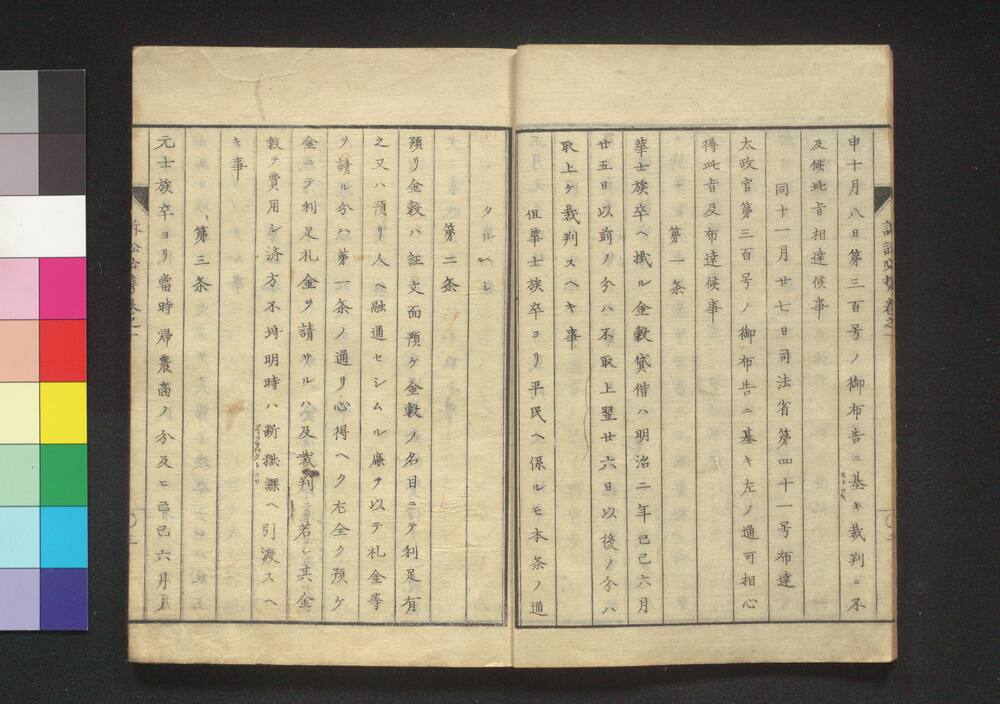 申十月八日第三百号ノ御布告ニ基キ裁判ニ不
及候此旨相達候事
同十一月廿七日司法省第四十一号布達
太政官第三百号ノ御布告ニ基キ左ノ通可相心
得此旨及布達候事
第一条
華士族卒ヘ掛ル金穀貸借ハ明治二年己巳六月
廿五日以前ノ分ハ不取上翌廿六日以後ノ分ハ
取上ケ裁判スヘキ事
但華士族卒ヨリ平民ヘ係ルモ本条ノ通
タルヘシ
第二条
預リ金穀ハ証文面預ケ金穀ノ名目ニテ利足有
之又ハ預リ人ヘ融通セシムル廉ヲ以テ礼金等
ヲ請ル分ハ第一条ノ通リ心得ヘク尤全ク預ケ
金ニテ利足礼金ヲ請サルハ及裁判若シ其金
穀ヲ費用シ済方不埒明時ハ断獄課ヘ引渡スヘ
キ事
第三条
元士族卒ヨリ當時帰農商ノ分及ヒ己巳六月